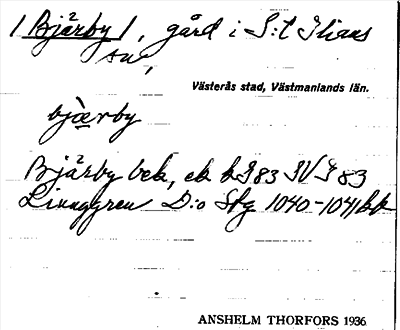 / Bjärby /, gård i S:t Ilians
sn,
Västerås stad, Västmanlands län.
bjæ̀rby
Bjärby bek, ek kJ 83 IV J 83
Linnggren D:o Stg 1040-1041 bk
ANSHELM THORFORS 1936